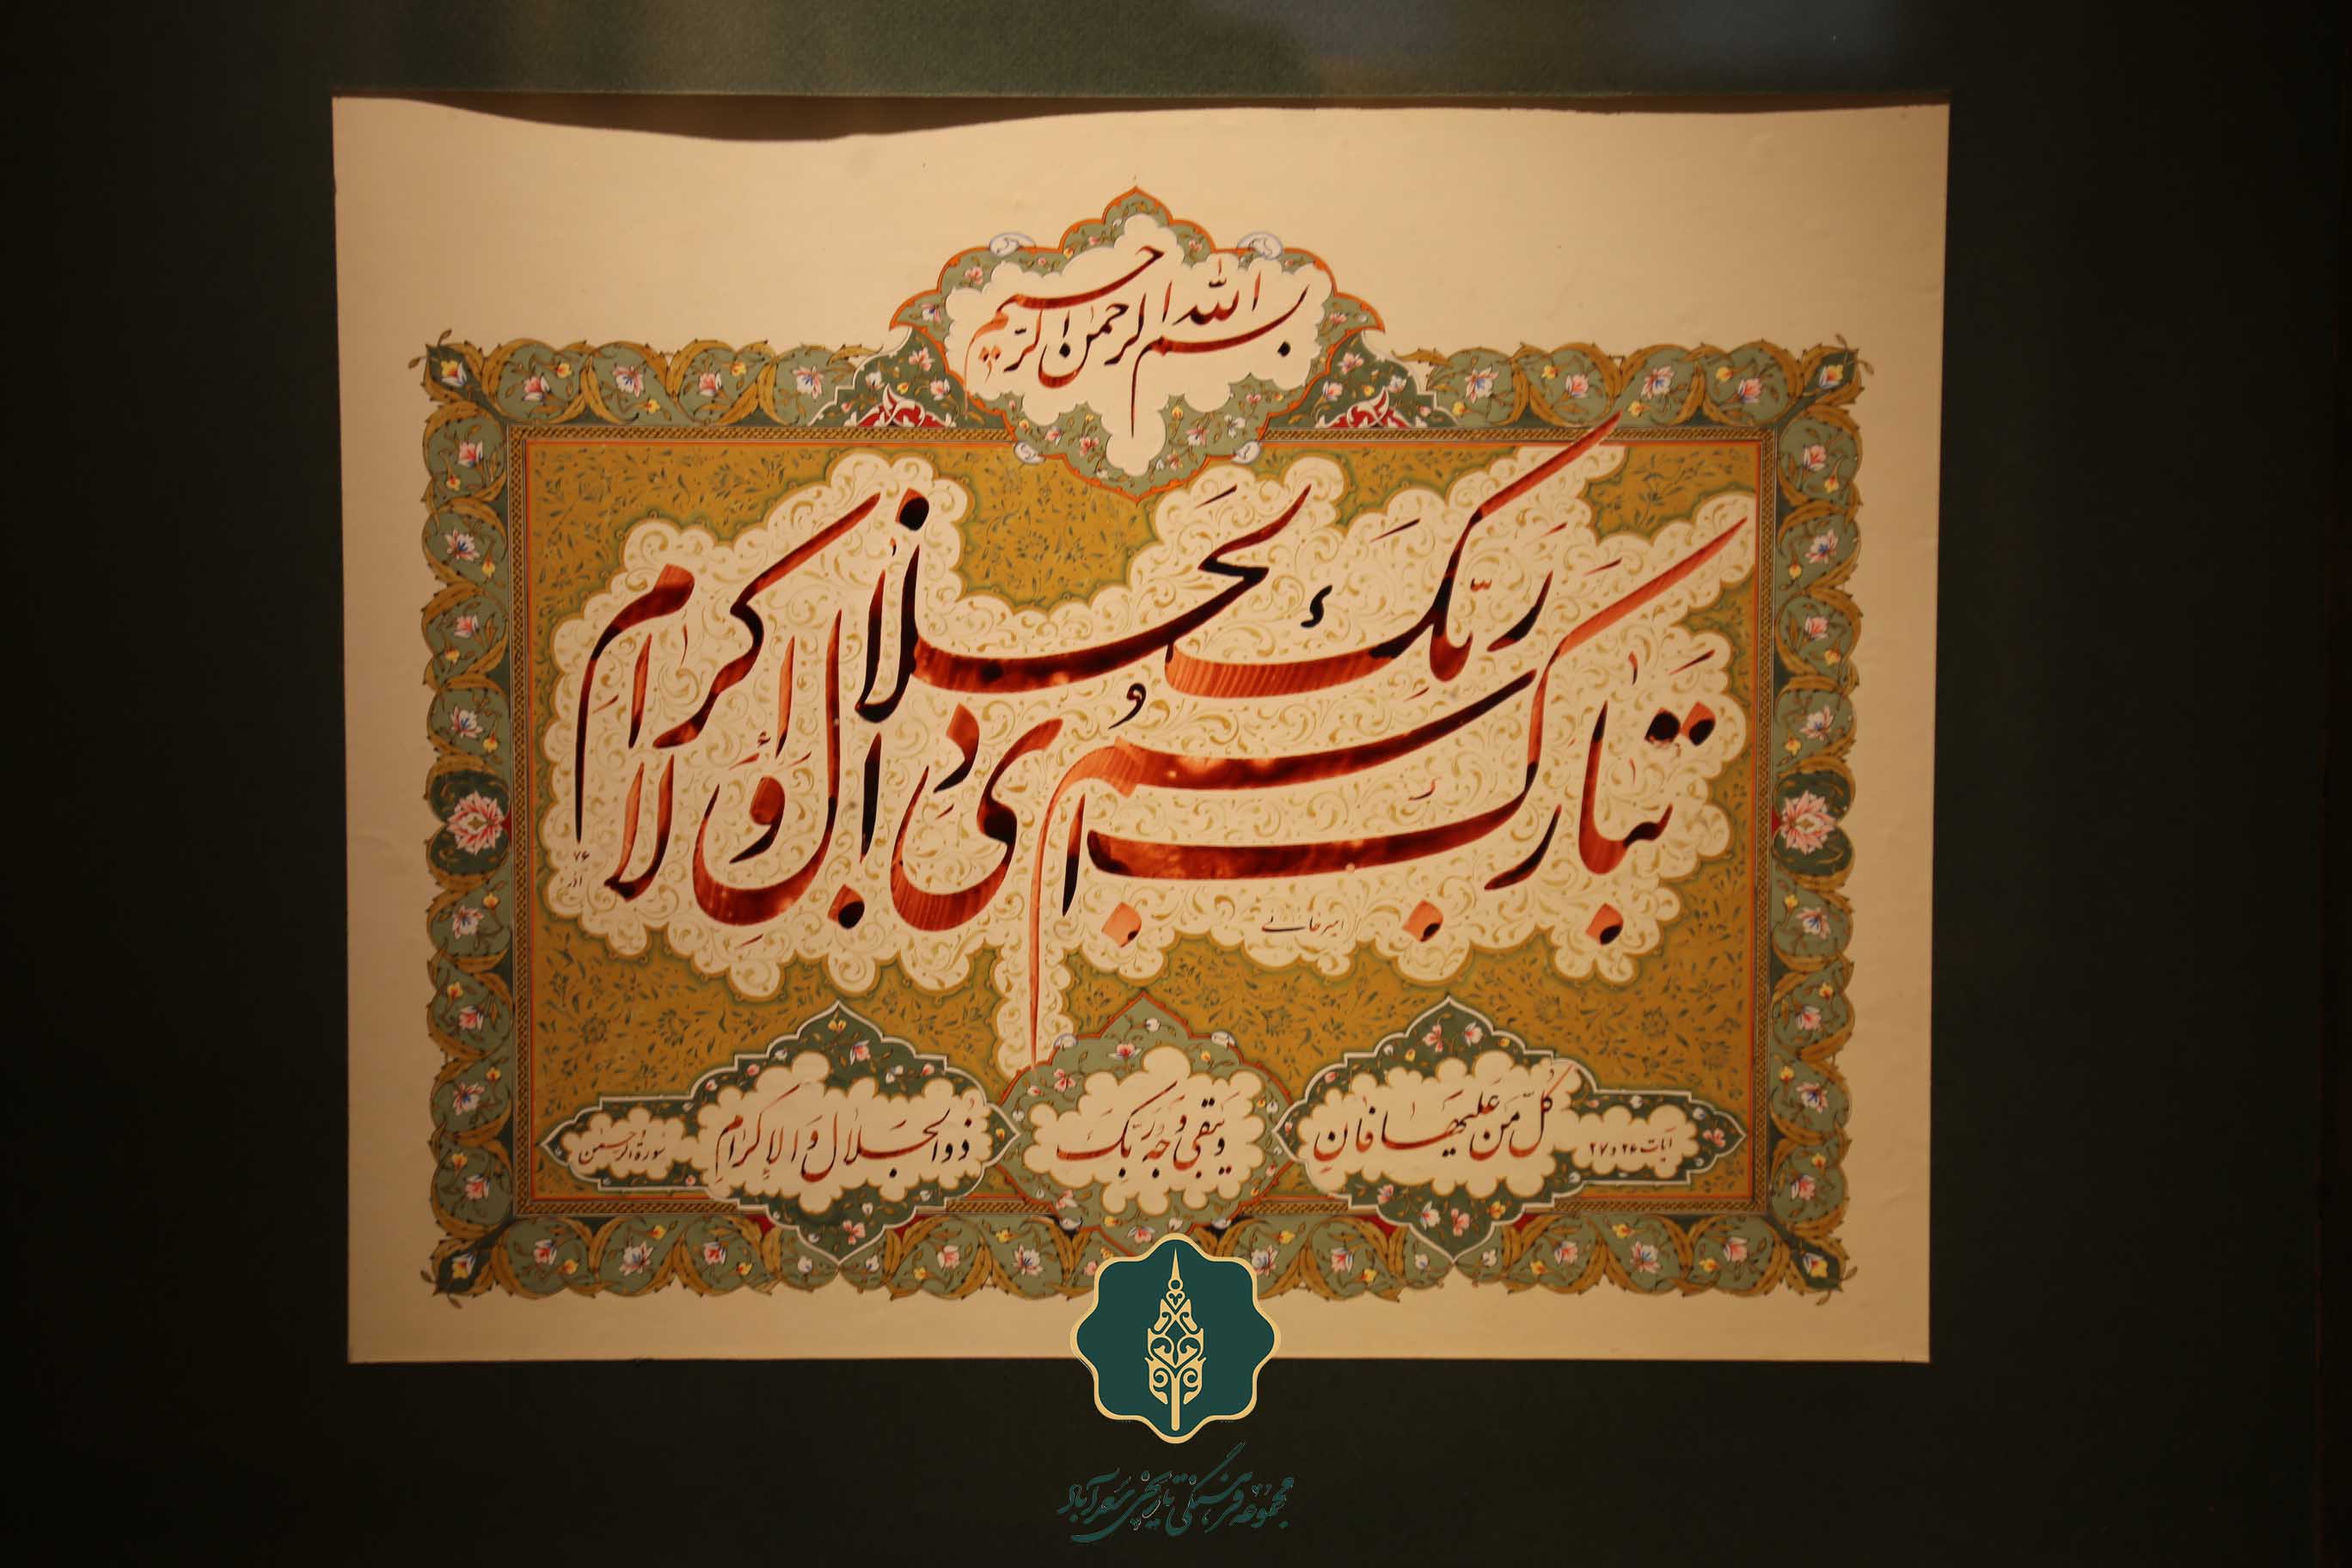 بسم الله الرحمن الرحیم
تبارک اسم ربک ذی الجلال والاکرام
امیرخانی
آذر ۷۶
آیات ۲۶ و ۲۷
کل من علیها فان
ویبقی وجه ربک
ذوالجلال والاکرام
سورة الرحمن
مجموعه فرهنگی تاریخی سعدآباد